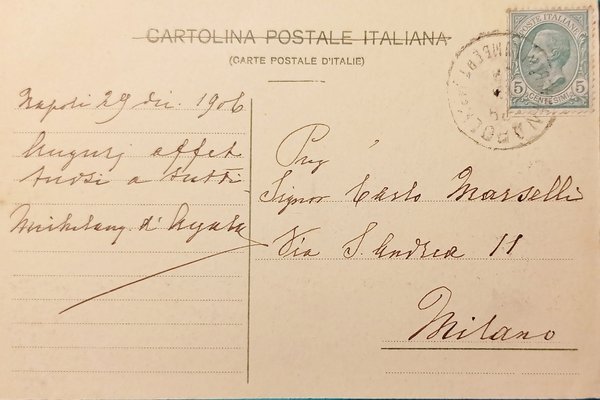 CARTOLINA POSTALE ITALIANA
(CARTE POSTALE D'ITALIE)
Napoli 29 dic. 1906
Augurj affet
tuosi a tutti
Michelang. d'Ayala
POSTE ITALIANE
5 CENTESIMI 5
NAPOLI
Signor Carlo Marselli
Via S. Andrea 11
Milano